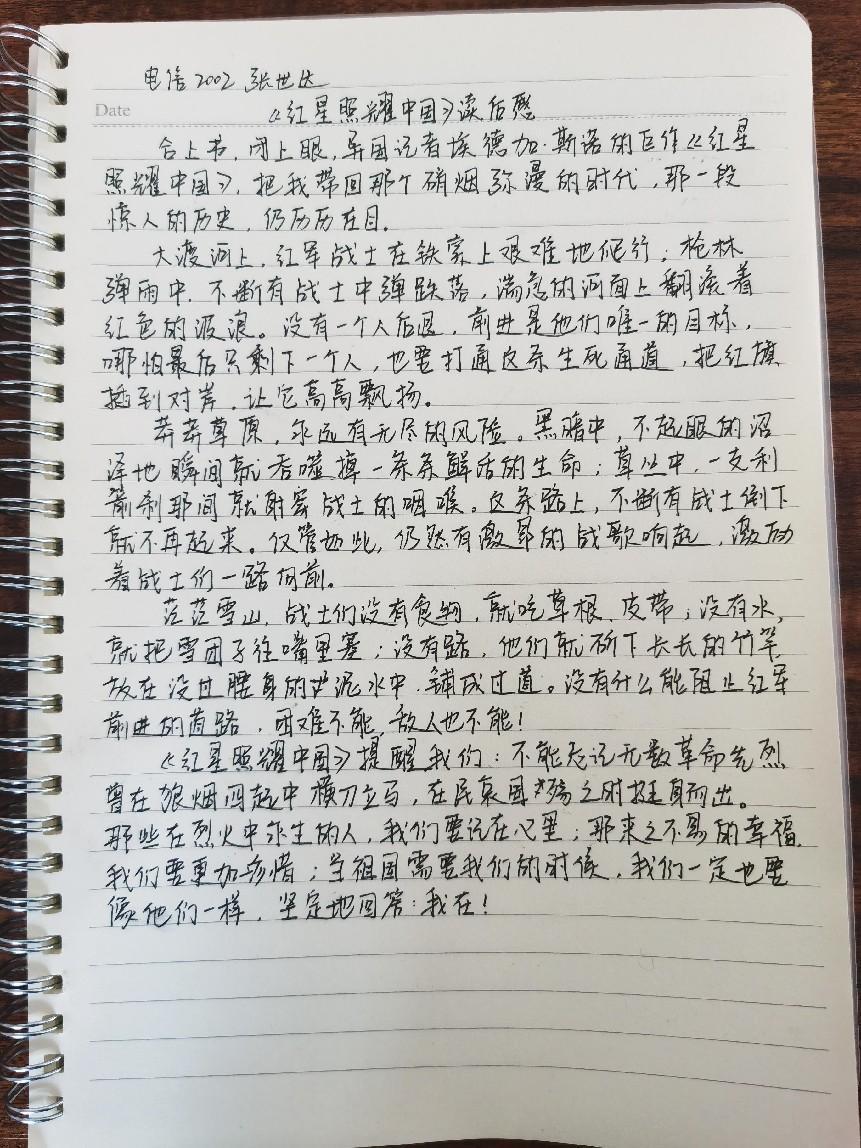 电信2002 张世达
Date
《红星照耀中国》读后感
合上书，闭上眼，异国记者埃德加·斯诺的巨作《红星
照耀中国》，把我带回那个硝烟弥漫的时代，那一段
惊人的历史，仍历历在目。
大渡河上，红军战士在铁索上艰难地爬行；枪林
弹雨中，不断有战士中弹跌落，湍急的河面上翻滚着
红色的波浪。没有一个人后退，前进是他们唯一的目标，
哪怕最后只剩下一个人，也要打通这条生死通道，把红旗
插到对岸，让它高高飘扬。
莽莽草原，永远有无尽的风险。黑暗中，不起眼的沼
泽地瞬间就吞噬掉一条条鲜活的生命；草丛中，一支利
箭刹那间就射穿战士的咽喉。这条路上，不断有战士倒下
就不再起来。仅管如此，仍然有激昂的战歌响起，激励
着战士们一路向前。
茫茫雪山，战士们没有食物，就吃草根、皮带；没有水，
就把雪团子往嘴里塞；没有路，他们就砍下长长的竹竿
放在没过腰身的泥水中，铺成过道。没有什么能阻止红军
前进的道路，困难不能，敌人也不能！
《红星照耀中国》提醒我们：不能忘记无数革命先烈
曾在狼烟四起中横刀立马，在民哀国殇之时挺身而出。
那些在烈火中求生的人，我们要记在心里；那来之不易的幸福，
我们要更加珍惜；当祖国需要我们的时候，我们一定也要
像他们一样，坚定地回答：我在！